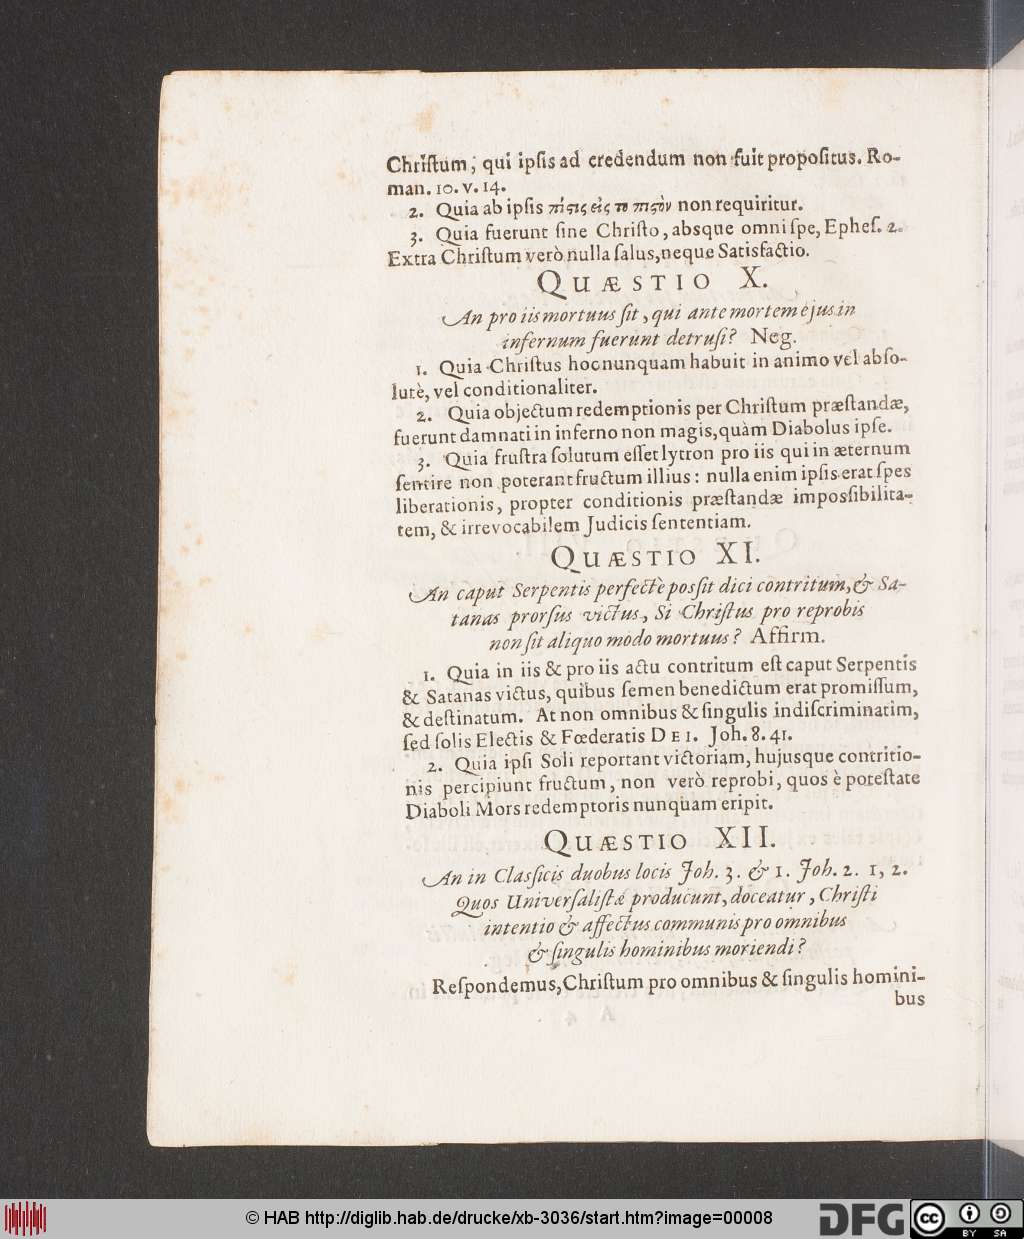 Chriſtum, qui ipſis ad credendum non fuit propoſitus. Ro-
man. 10. v. 14.
2. Quia ab ipſis πίςις εἰς το πιςὸν non requiritur.
3. Quia fuerunt ſine Chriſto, absque omni ſpe, Epheſ. 2.
Extra Chriſtum verò nulla ſalus, neque Satisfactio.
QUÆSTIO X.
An pro iis mortuus ſit, qui ante mortem ejus in
infernum fuerunt detruſi? Neg.
1. Quia Chriſtus hoc nunquam habuit in animo vel abſo-
lutè, vel conditionaliter.
2. Quia objectum redemptionis per Chriſtum præſtandæ,
fuerunt damnati in inferno non magis, quàm Diabolus ipſe.
3. Quia fruſtra ſolutum eſſet lytron pro iis qui in æternum
ſentire non poterant fructum illius: nulla enim ipſis erat ſpes
liberationis, propter conditionis præſtandæ impossibilita-
tem, & irrevocabilem Judicis ſententiam.
QUÆSTIO XI.
An caput Serpentis perfectè poſsit dici contritum, & Sa-
tanas prorſus victus, Si Chriſtus pro reprobis
non ſit aliquo modo mortuus? Affirm.
1. Quia in iis & pro iis actu contritum eſt caput Serpentis
& Satanas victus, quibus ſemen benedictum erat promiſſum,
& deſtinatum. At non omnibus & ſingulis indiſcriminatim,
ſed ſolis Electis & Fœderatis DEI. Joh. 8. 41.
2. Quia ipſi Soli reportant victoriam, hujusque contritio-
nis percipiunt fructum, non verò reprobi, quos è poteſtate
Diaboli Mors redemptoris nunquam eripit.
QUÆSTIO XII.
An in Claſsicis duobus locis Joh. 3. & 1. Joh. 2. 1, 2.
Quos Univerſaliſtæ producunt, doceatur, Chriſti
intentio & affectus communis pro omnibus
& ſingulis hominibus moriendi?
Reſpondemus, Chriſtum pro omnibus & ſingulis homini-
bus
© HAB http://diglib.hab.de/drucke/xb-3036/start.htm?image=00008
DFG
cc BY SA